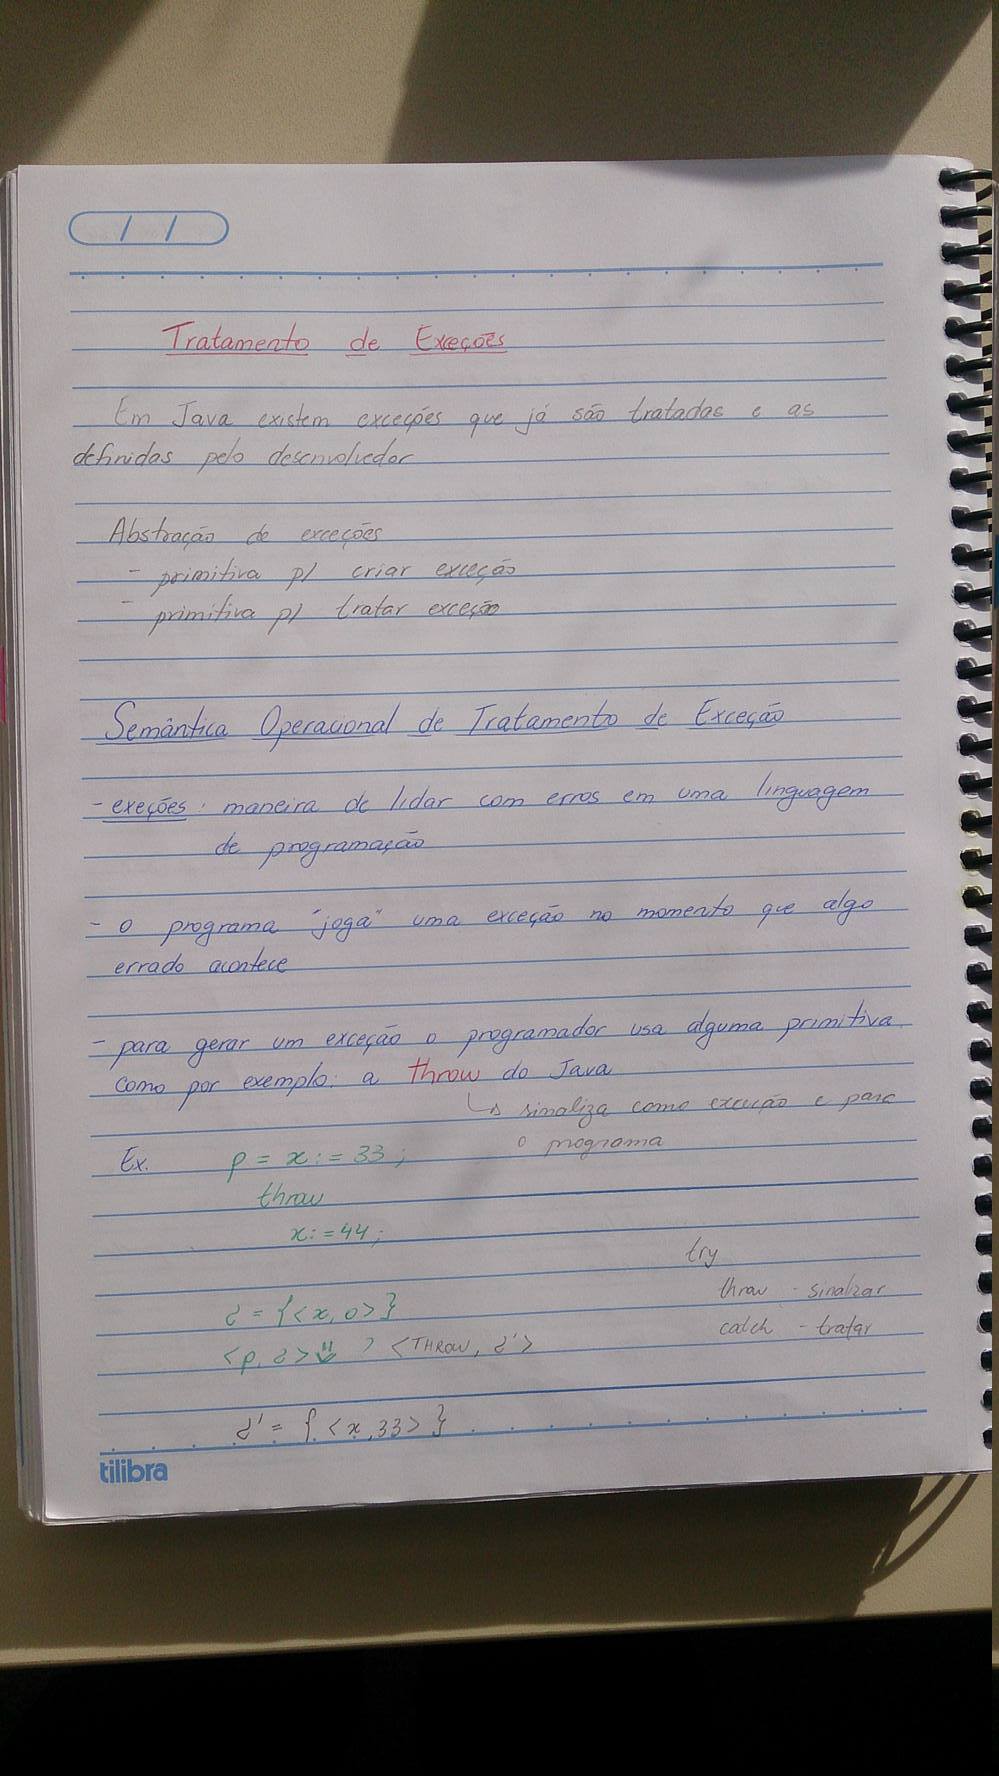 Tratamento de Exeções
Em Java existem exceções que já são tratadas e as
definidas pelo desenvolvedor
Abstração de exceções
- primitiva p/ criar exceção
- primitiva p/ tratar exceção
Semântica Operacional de Tratamento de Exceção
- exeções: maneira de lidar com erros em uma linguagem
de programação
- o programa "joga" uma exceção no momento que algo
errado acontece
- para gerar um exceção o programador usa alguma primitiva
como por exemplo: a throw do Java
↳ sinaliza como exceção e para
o programa
Ex. p = x := 33;
throw
x := 44;
try
throw - sinalizar
catch - tratar
= {<x, 0>}
<THROW,
= {<x, 33>}
tilibra